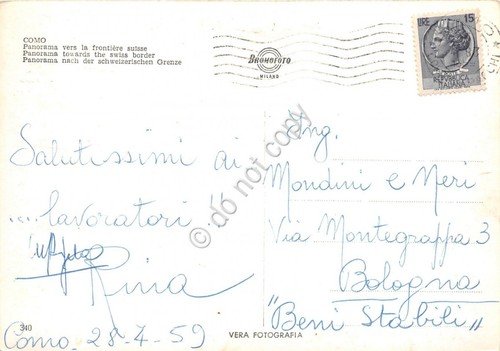 COMO
Panorama vers la frontière suisse
Panorama towards the swiss border
Panorama nach der schweizerischen Grenze
BROMOFOTO
MILANO
LIRE 15
Salutissimi ai
...lavoratori
Pina
340
Como 28-7-59
Ing.
Mondini e Neri
Via Montegrappa 3
Bologna
"Beni Stabili"
VERA FOTOGRAFIA
do not copy